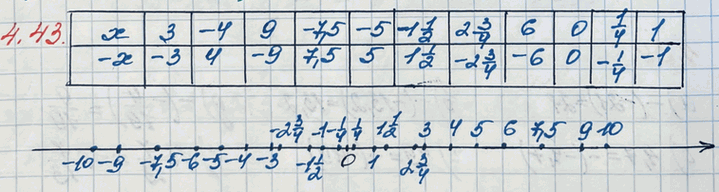 4.43. x 3 -4 9 -7,5 -5 -1 1/2 2 3/4 6 0 1/4 1
-x -3 4 -9 7,5 5 1 1/2 -2 3/4 -6 0 -1/4 -1
-2 3/4 -1 -1/4 1/4 1 1/2 3 4 5 6 7,5 9 10
-10 -9 -7,5 -6 -5 -4 -3 -1 1/2 0 1 2 3/4